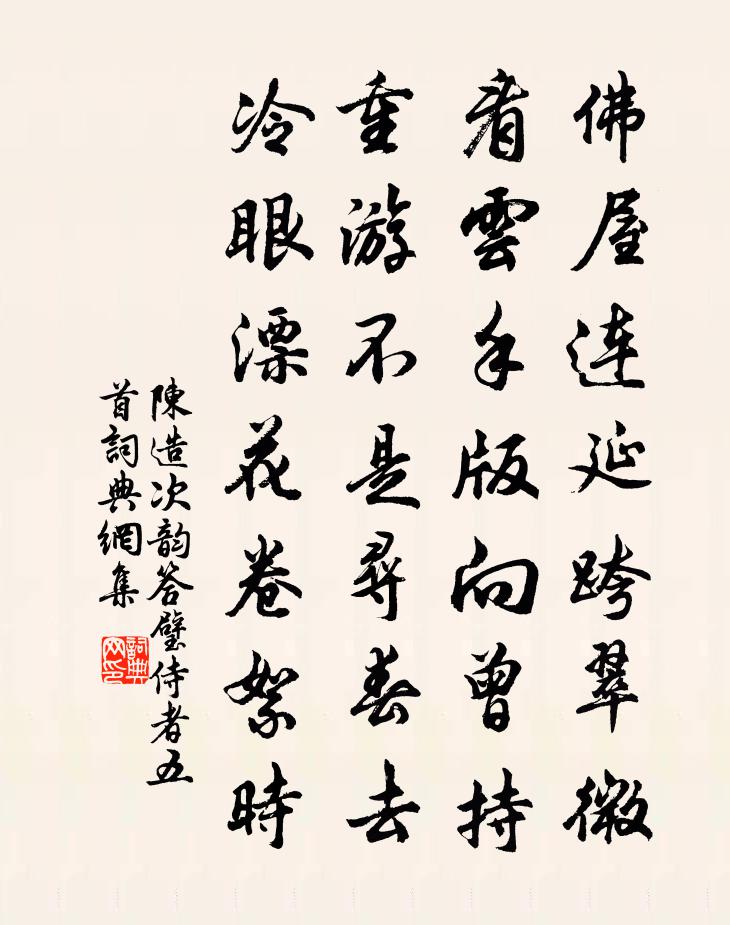 佛屋連延跨翠微
看雲手版向曾持
重游不是尋春去
冷眼漂花卷絮時
陳造次韵答璧侍者五
首詞典網集
詞典
网印